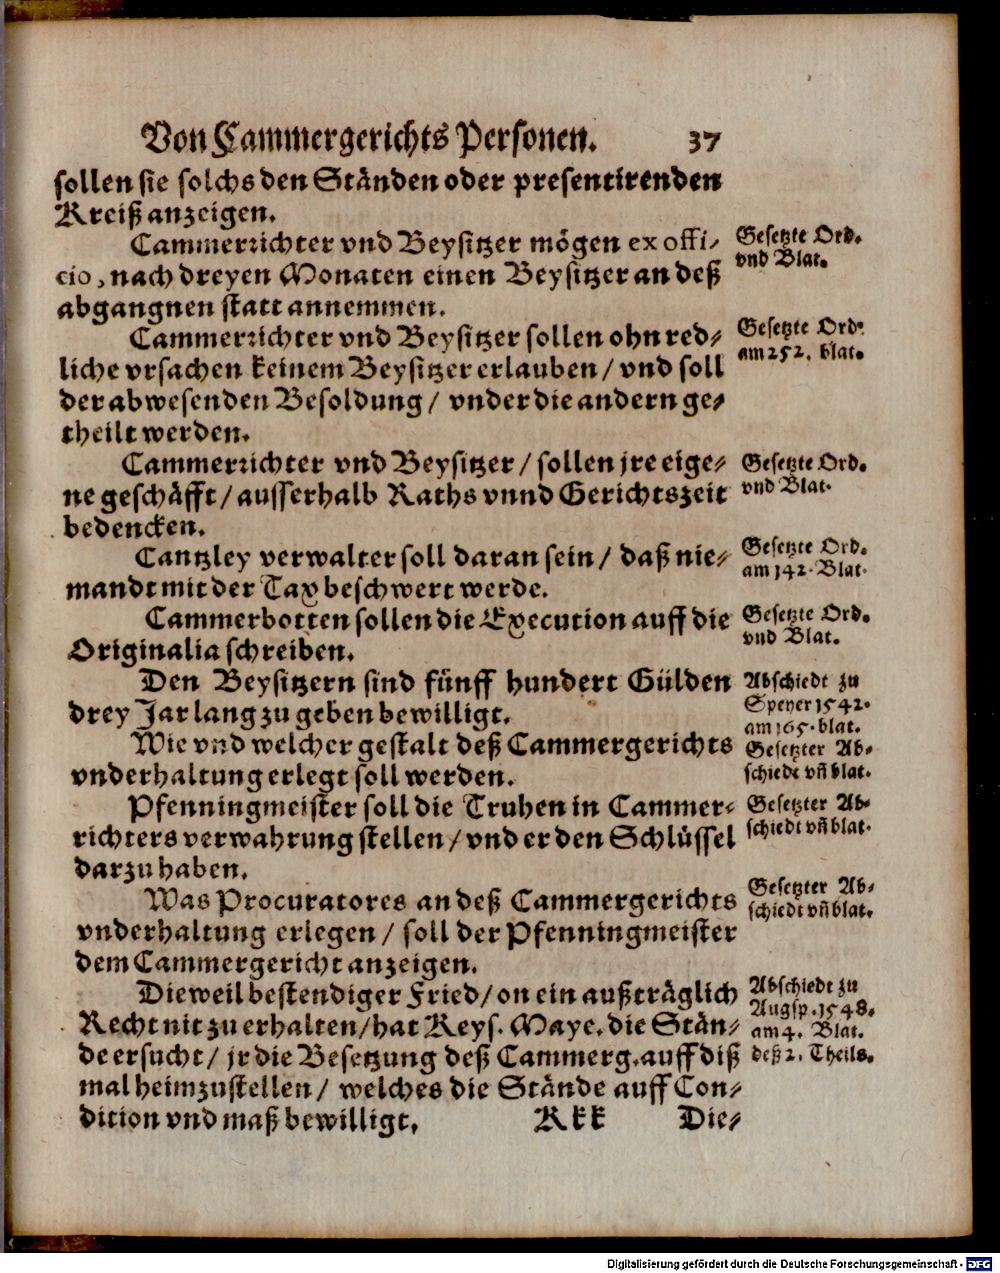 Von Cammergerichts Personen. 37
sollen sie solchs den Ständen oder presentirenden
Kreiß anzeigen.
Cammerrichter vnd Beysitzer mögen ex offi-
cio, nach dreyen Monaten einen Beysitzer an deß
abgangnen statt annemmen.
Gesetzte Ord.
vnd Blat.
Cammerrichter vnd Beysitzer sollen ohn red-
liche vrsachen keinem Beysitzer erlauben / vnd soll
der abwesenden Besoldung / vnder die andern ge-
theilt werden.
Gesetzte Ord.
am 252. blat.
Cammerrichter vnd Beysitzer / sollen jre eige-
ne geschäfft / ausserhalb Raths vnnd Gerichtszeit
bedencken.
Gesetzte Ord.
vnd Blat.
Cantzley verwalter soll daran sein / daß nie-
mandt mit der Tax beschwert werde.
Gesetzte Ord.
am 142. Blat.
Cammerbotten sollen die Execution auff die
Originalia schreiben.
Gesetzte Ord.
vnd Blat.
Den Beysitzern sind fünff hundert Gülden
drey Jar lang zu geben bewilligt.
Abschiedt zu
Speyer 1542.
am 165. blat.
Wie vnd welcher gestalt deß Cammergerichts
vnderhaltung erlegt soll werden.
Gesetzter Ab-
schiedt vñ blat.
Pfenningmeister soll die Truhen in Cammer-
richters verwahrung stellen / vnd er den Schlüssel
darzu haben.
Gesetzter Ab-
schiedt vñ blat.
Was Procuratores an deß Cammergerichts
vnderhaltung erlegen / soll der Pfenningmeister
dem Cammergericht anzeigen.
Gesetzter Ab-
schiedt vñ blat.
Dieweil bestendiger Fried / on ein außträglich
Recht nit zu erhalten / hat Keys. Maye. die Stän-
de ersucht / jr die Besetzung deß Cammerg. auff diß
mal heimzustellen / welches die Stände auff Con-
dition vnd maß bewilligt.
Abschiedt zu
Augsp. 1548.
am 4. Blat.
deß 2. Theils.
Kkk Die-
Digitalisierung gefördert durch die Deutsche Forschungsgemeinschaft - DFG